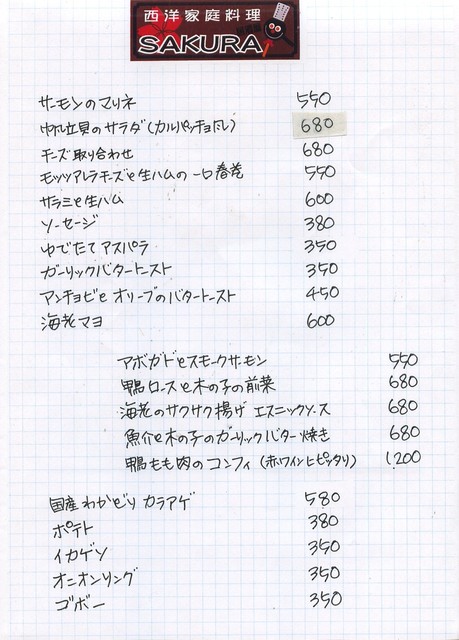 西洋家庭料理
SAKURA
サーモンのマリネ 550
帆立貝のサラダ(カルパッチョ風) 680
チーズ取り合わせ 680
モッツアレラチーズと生ハムの一口春巻 550
サラミと生ハム 600
ソーセージ 380
ゆでたてアスパラ 350
ガーリックバタートースト 350
アンチョビとオリーブのバタートースト 450
海老マヨ 600
アボガドとスモークサーモン 550
鴨ロースと木の子の前菜 680
海老のサクサク揚げ エスニックソース 680
魚介と木の子のガーリックバター焼き 680
鴨もも肉のコンフィ(赤ワインにピッタリ) 1,200
国産わかどりカラアゲ 580
ポテト 380
イカゲソ 350
オニオンリング 350
ゴボー 350